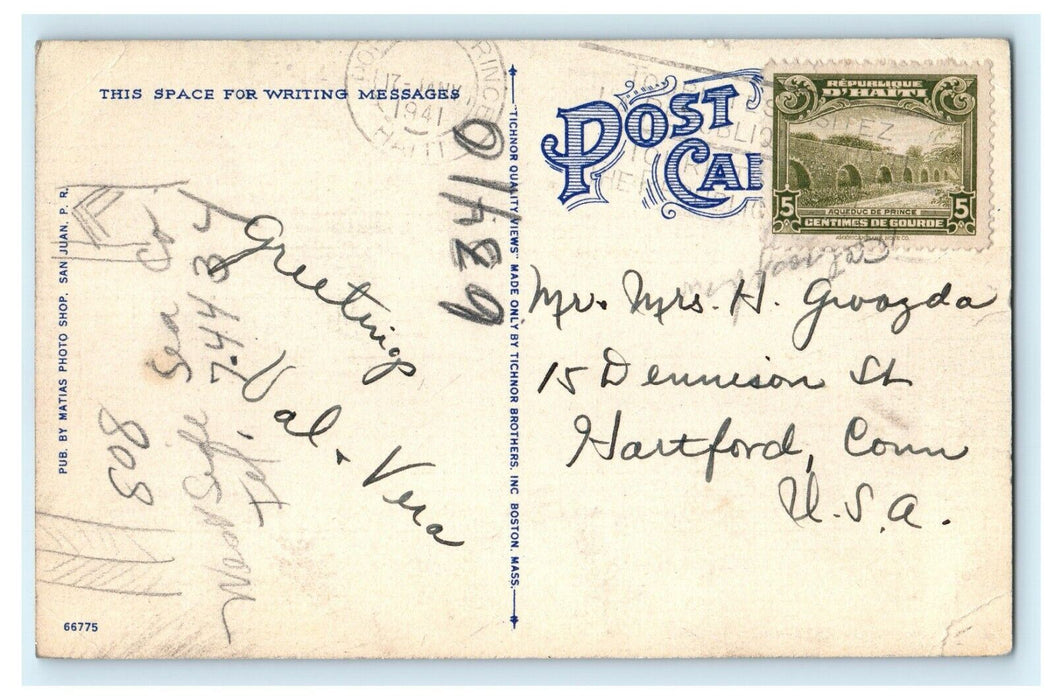 THIS SPACE FOR WRITING MESSAGES
PORT PRINCE
17-JAN
1941
HAITI
POST CAR
RÉPUBLIQUE
D'HAITI
AQUEDUC DE PRINCE
5 CENTIMES DE GOURDE 5
Greetings
Val + Vera
Mr. Mrs. H. Gwozda
15 Dennison St
Hartford, Conn
U.S.A.
"TICHNOR QUALITY VIEWS" MADE ONLY BY TICHNOR BROTHERS, INC BOSTON, MASS.
PUB. BY MATIAS PHOTO SHOP, SAN JUAN, P. R.
Sea Co
Tel, 7-4434
808
66775